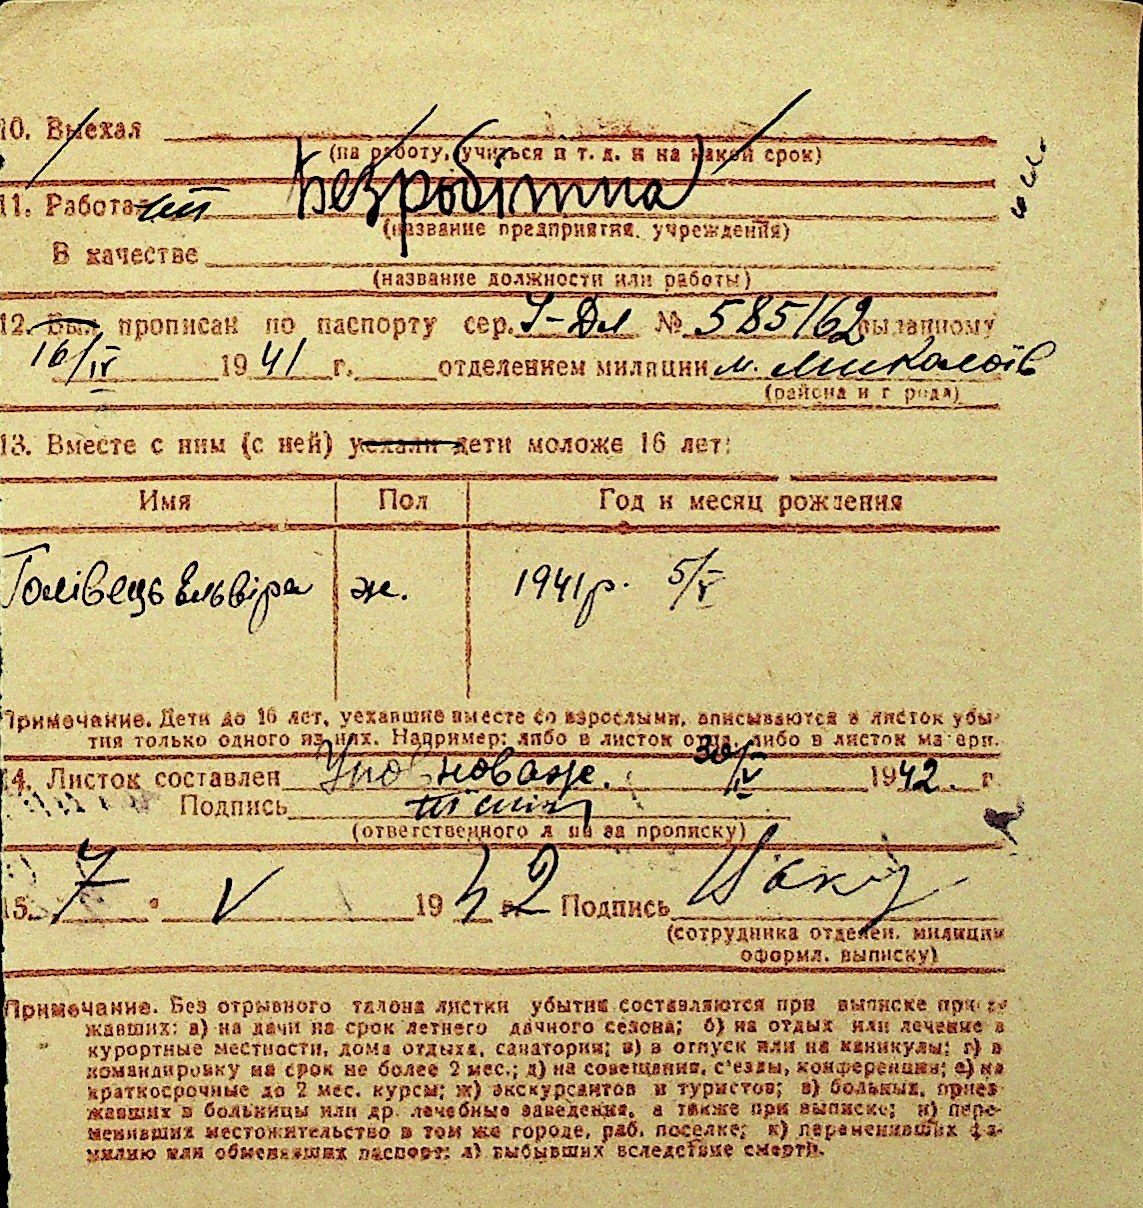 10. Выехал
(на работу, учиться и т. д. и на какой срок)
11. Работает Безробітна
(название предприятия, учреждения)
В качестве
(название должности или работы)
12. Был прописан по паспорту сер. У-Дл № 585162 выданному
16/IV 1941 г. отделением милиции м. Миколаїв
(района и города)
13. Вместе с ним (с ней) уехали дети моложе 16 лет:
Имя Пол Год и месяц рождения
Голівець Ельвіра ж. 1941 р. 5/V
Примечание. Дети до 16 лет, уехавшие вместе со взрослыми, вписываются в листок убы-
тия только одного из них. Например: либо в листок отца, либо в листок матери.
14. Листок составлен 30/IV 1942. г.
Подпись
(ответственного л за прописку)
15. 7 V 1942 г. Подпись
(сотрудника отделен. милиции
оформл. выписку)
Примечание. Без отрывного талона листки убытия составляются при выписке приез-
жавших: а) на дачи на срок летнего дачного сезона; б) на отдых или лечение в
курортные местности, дома отдыха, санатории; в) в отпуск или на каникулы; г) в
командировку на срок не более 2 мес.; д) на совещания, с'езды, конференции; е) на
краткосрочные до 2 мес. курсы; ж) экскурсантов и туристов; з) больных, приез-
жавших в больницы или др. лечебные заведения, а также при выписке; и) пере-
менивших местожительство в том же городе, раб. поселке; к) переменивших фа-
милию или обменявших паспорт; л) выбывших вследствие смерти.